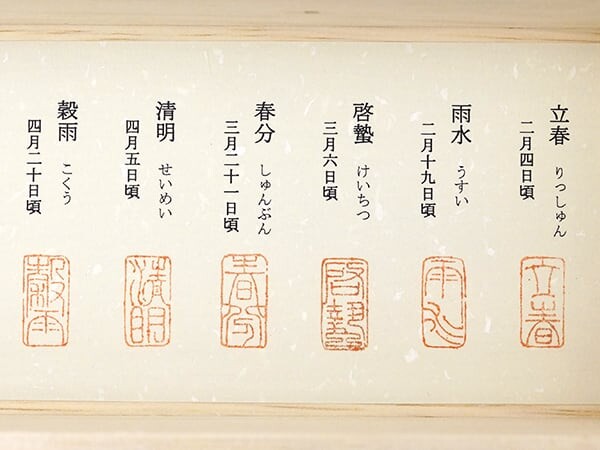 立春 りっしゅん
二月四日頃
立春
雨水 うすい
二月十九日頃
雨水
啓蟄 けいちつ
三月六日頃
啓蟄
春分 しゅんぶん
三月二十一日頃
春分
清明 せいめい
四月五日頃
清明
穀雨 こくう
四月二十日頃
穀雨